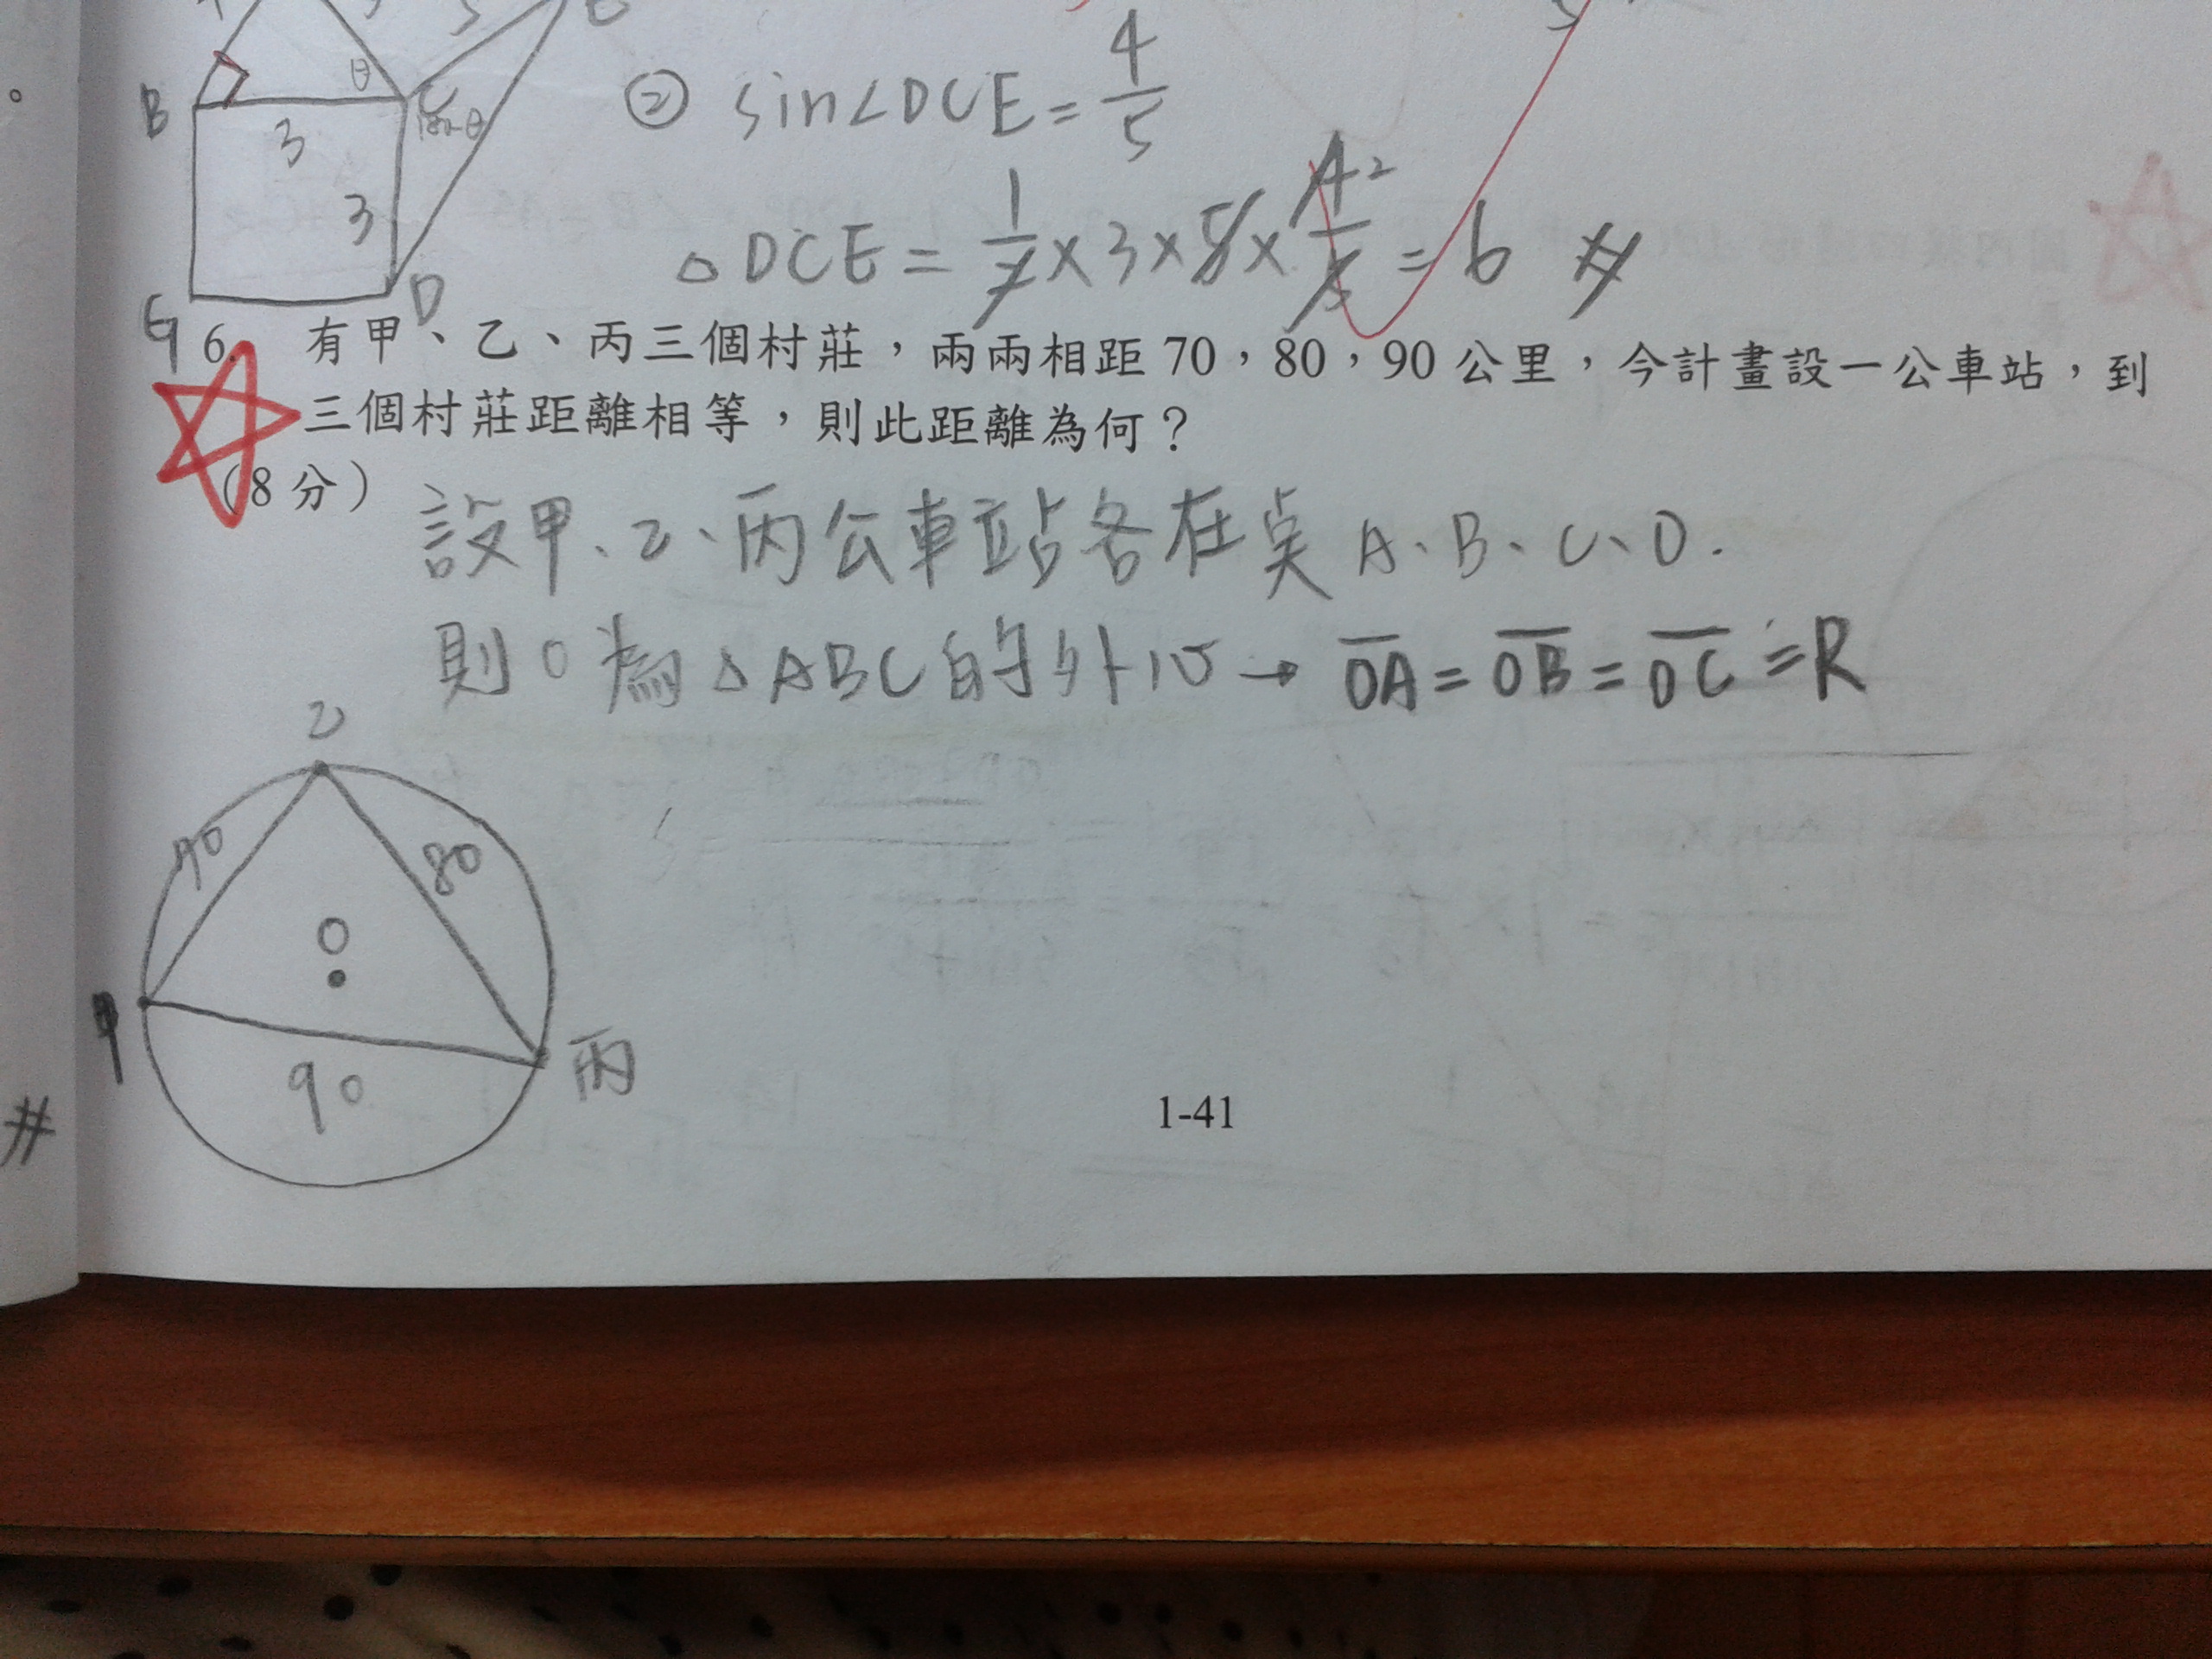 B
θ
C
180-θ
3
3
G
D
② sin∠DCE=4/5
△DCE=1/2×3×5×4/5 2=6 #
6. 有甲、乙、丙三個村莊，兩兩相距 70，80，90 公里，今計畫設一公車站，到
三個村莊距離相等，則此距離為何？
(8 分)
設甲、乙、丙公車站各在点 A、B、C、O.
則O為△ABC的外心→ OA=OB=OC=R
乙
80
O
甲
90
丙
1-41
#